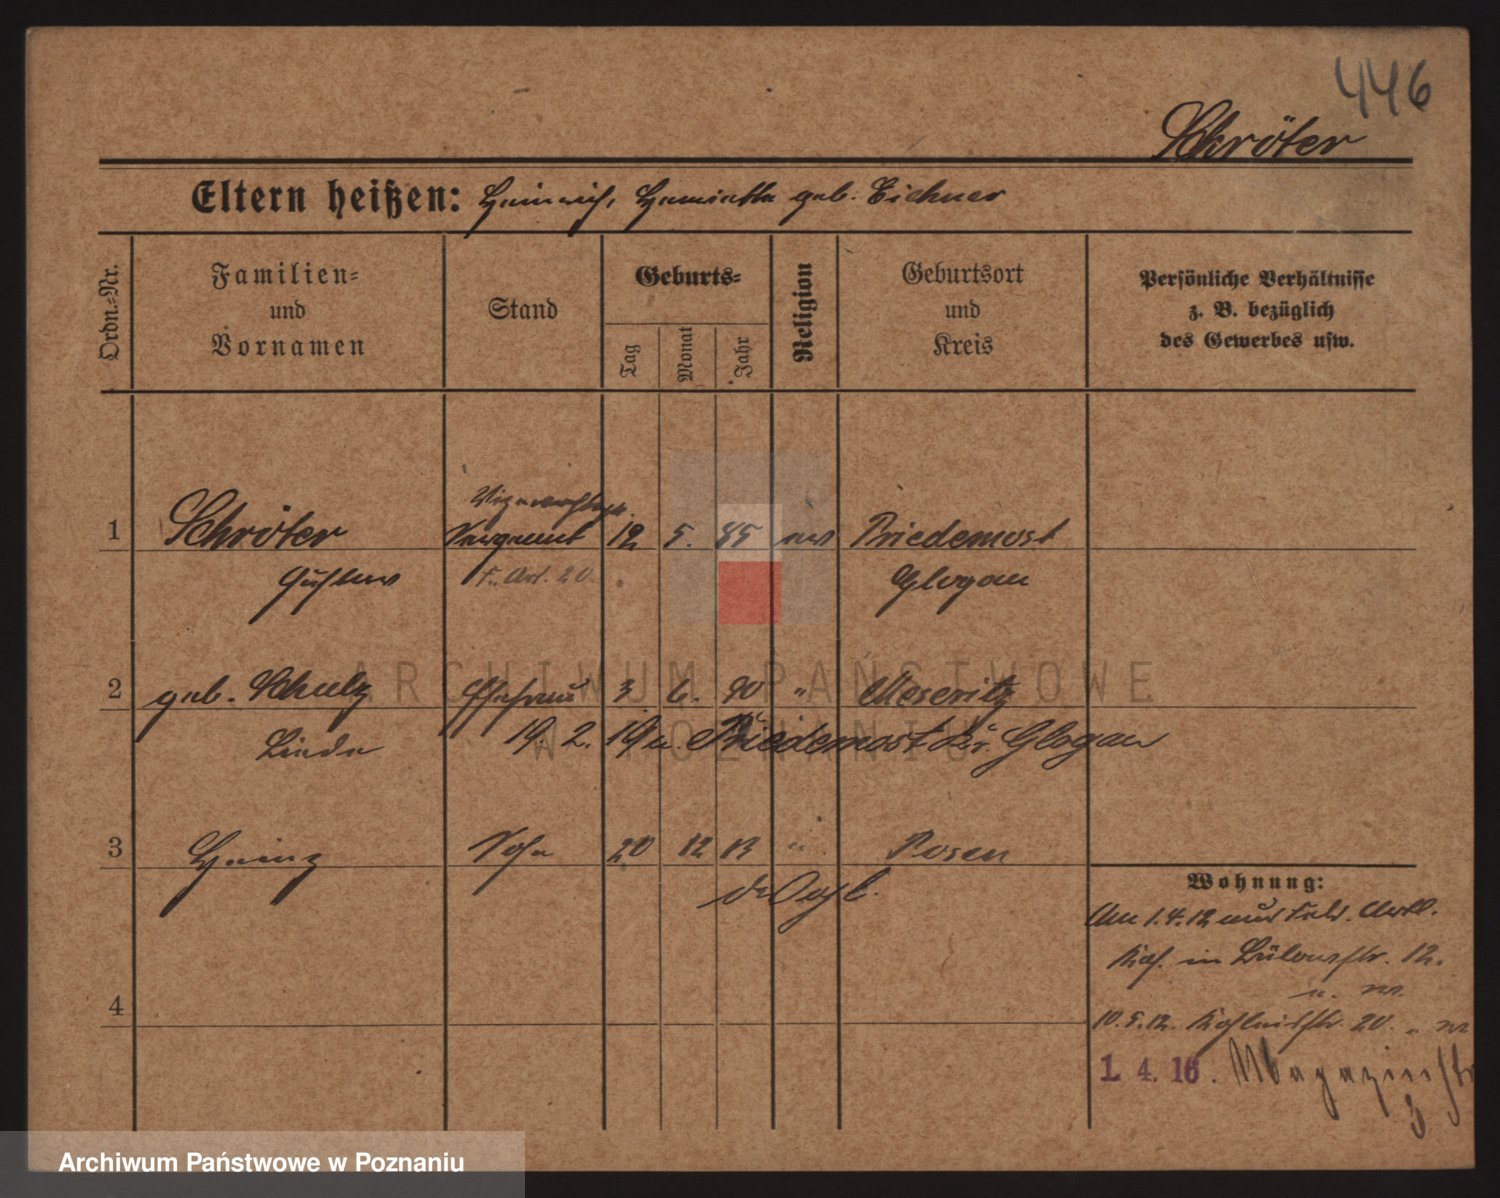 446
Schröter
Eltern heißen: Heinrich, Henriette geb. Eichner
Ordn.-Nr.
Familien-
und
Vornamen
Stand
Geburts-
Tag
Monat
Jahr
Religion
Geburtsort
und
Kreis
Persönliche Verhältnisse
z. B. bezüglich
des Gewerbes usw.
1 Schröter Sergeant 12 5. 85 ev Priedemost
Gustav F. Art. 20. Glogau
2 geb. Schulz Ehefrau 3 6. 90 " Meseritz
Linda 19. 2. 19 n. Priedemost Kr. Glogau
3 Heinz Sohn 20 12 13 " Posen
Wohnung:
Am 1.4.12 aus Feld. Artl.
Kas. in Bülowstr. 12.
10.5.12.
20.
1. 4. 16. Magazinstr
3
4
ARCHIWUM PAŃSTWOWE
W POZNANIU
Archiwum Państwowe w Poznaniu